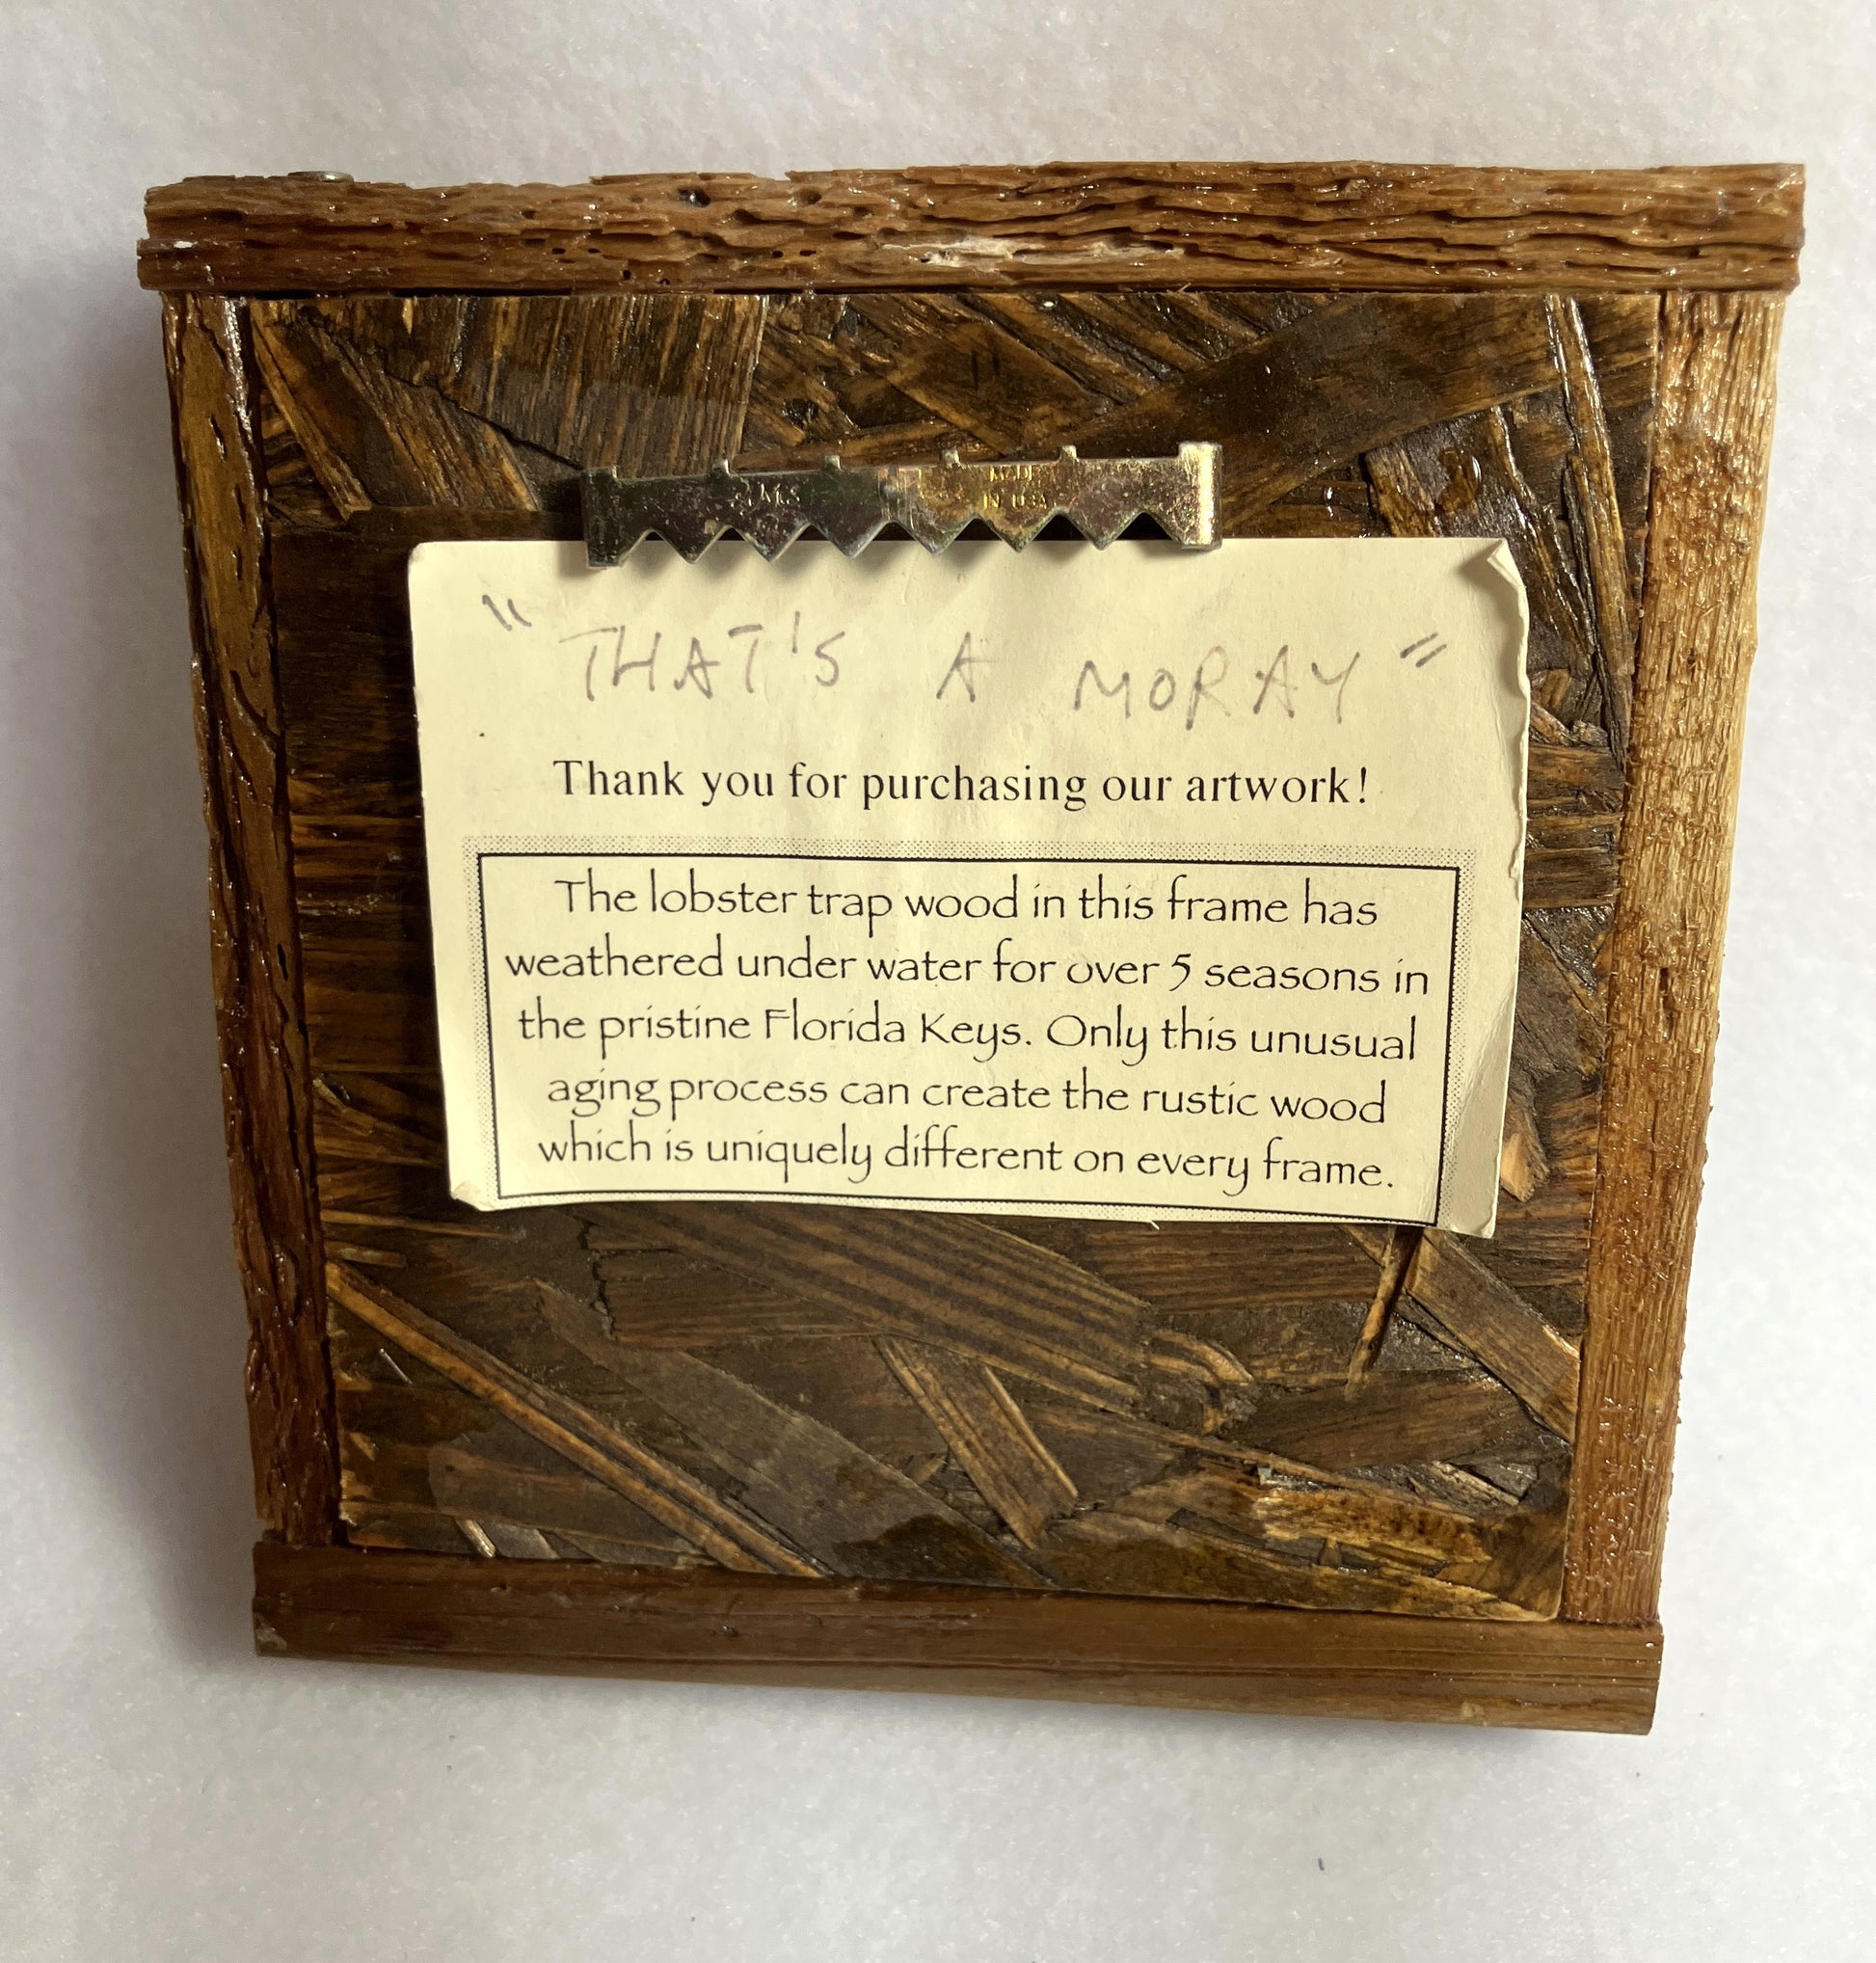 MADE
IN USA
"THAT'S A MORAY"
Thank you for purchasing our artwork!
The lobster trap wood in this frame has
weathered under water for over 5 seasons in
the pristine Florida Keys. Only this unusual
aging process can create the rustic wood
which is uniquely different on every frame.